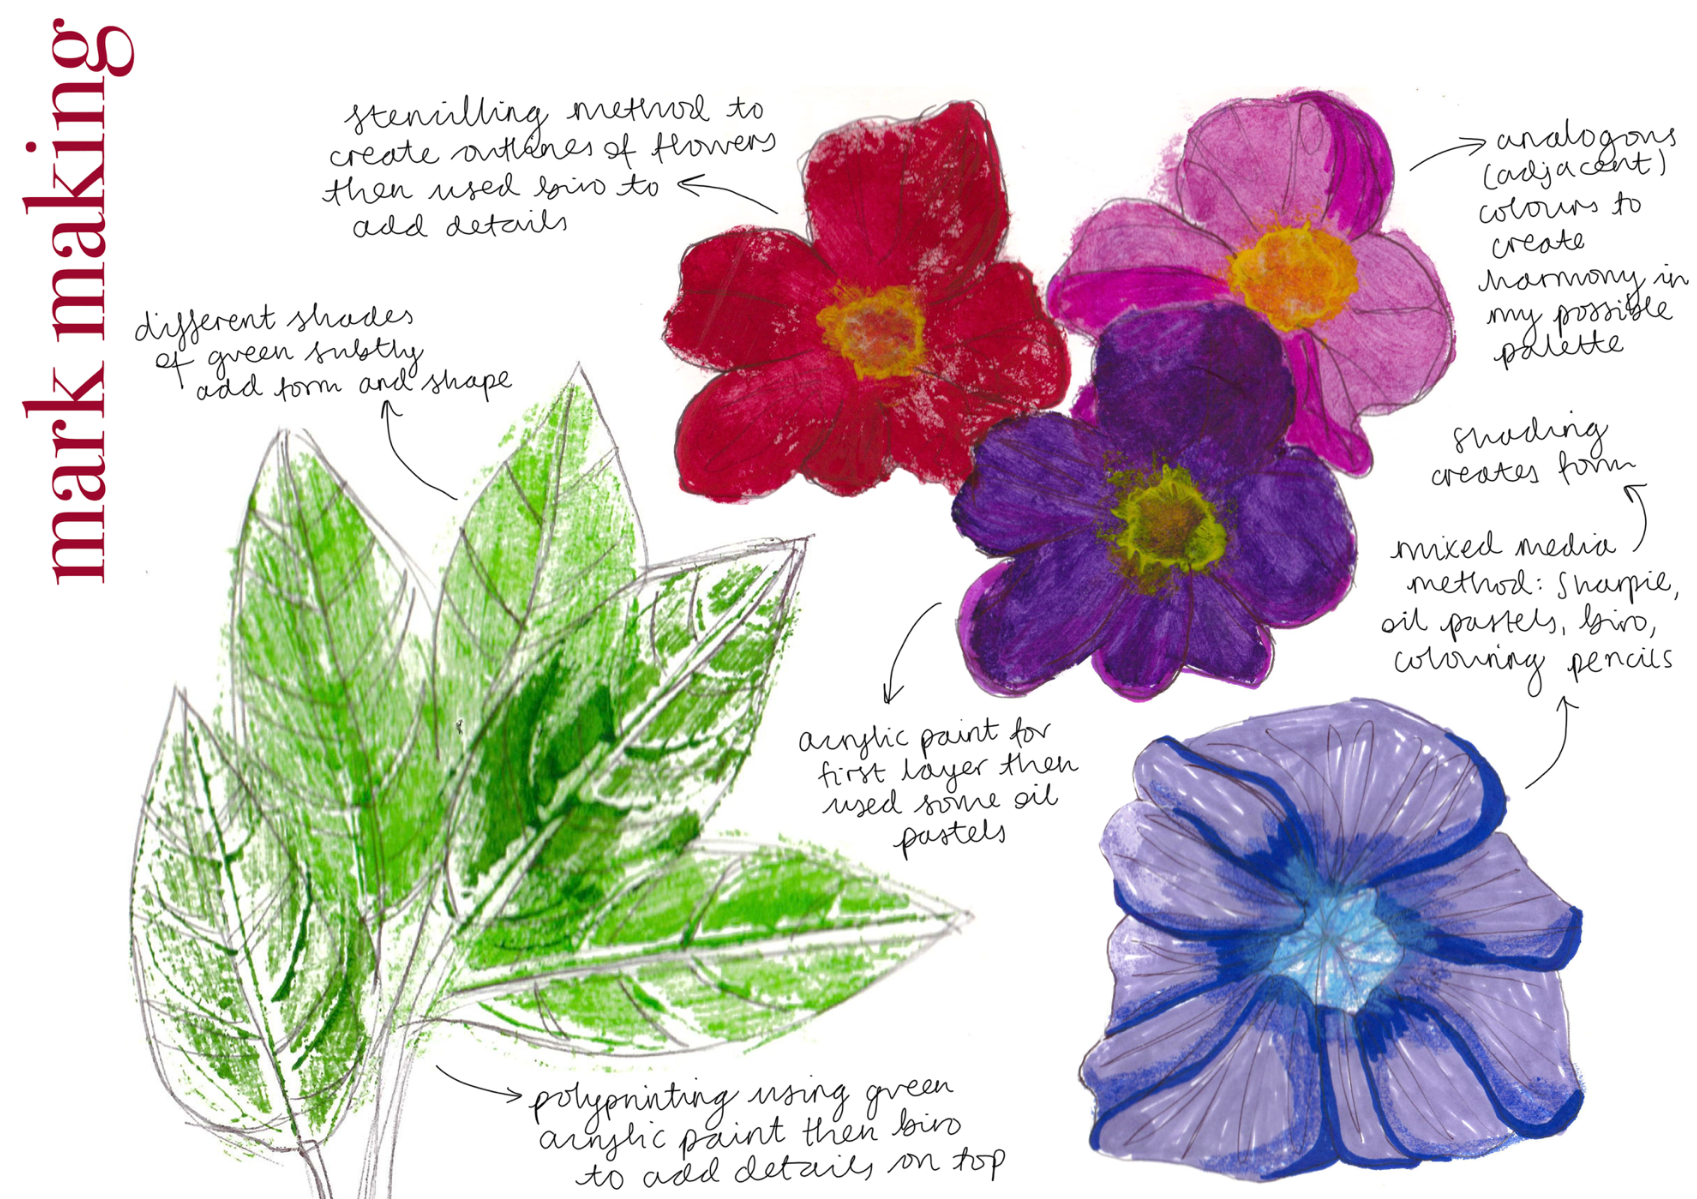 mark making
stencilling method to
create outlines of flowers
then used biro to
add details
analogous
(adjacent)
colours to
create
harmony in
my possible
palette
different shades
of green subtly
add form and shape
shading
creates form
mixed media
method: Sharpie,
oil pastels, biro,
colouring pencils
acrylic paint for
first layer then
used some oil
pastels
polyprinting using green
acrylic paint then biro
to add details on top